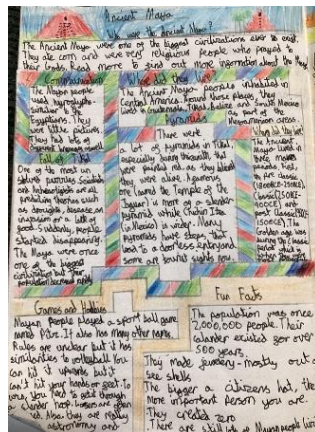 Ancient Maya
Who were the Ancient Maya?
The Ancient Maya were one of the biggest civilizations ever to exist.
They ate corn and were very religious people who prayed to
their Gods. Read more to find out more information about the Maya
Communication
The Mayan people
used hyroglyphs-
similar to the
Egyptians. They
were little pictures.
They had lots of
Fall of Tikal
One of the most un
solved puzzles. Scientists
and Archaeologists are all
predicting theories such
as drought, disease, an
invasion or a lack of
food. Suddenly, people
started disappearing.
The Maya were once
one of the biggest
civilization but their
population decreased
Where did they live?
The Ancient Maya people inhabited in
Central America. Around
lived in Guatemala, Belize and South Mexico
as part of the
Mesoamerican
Pyramids
There were
a lot of pyramids in Tikal,
especially during
were painted red as they
they were alive. A famous
one (named the Temple of the
Jaguar) is more of a slender
pyramid while Chichen Itza
(in Mexico) is wider. Many
pyramids have steps that
lead to a doorless entry and
some are found
When did they live?
The Ancient
Maya lived in
three main
periods
are pre classic
Classic
and
post Classic
The
Golden age was
during the Classic
period which is
Games and Hobbies
Mayan people played a sport/ball game
named Pitz. It also has many other names.
Rules are unclear but it has
similarities to volleyball. You
can hit it upwards but
can't hit your hands or feet. To
you need to get through
a slender hoop. Losers are often
Also, they are really
astronomy and
Fun Facts
The population was once
2,000,000 people. Their
calander existed for over
500 years.
They made jewelery - mostly out of
sea shells
The bigger a citizens hat, the
more important person you are.
They created zero
There are still lots of Mayan people living